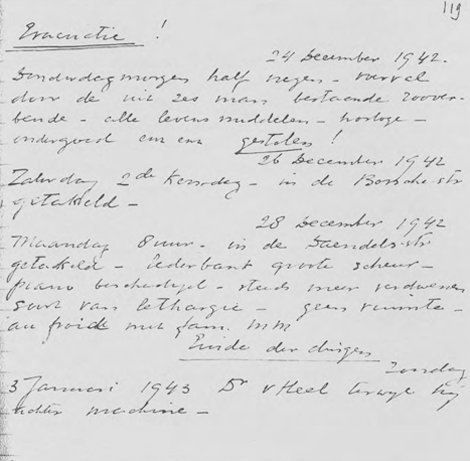 119
Evacuatie !
24 December 1942.
Donderdagmorgen half negen – overval
door de uit zes man bestaande roover-
bende – alle levensmiddelen – horloge –
ondergoed enz enz gestolen !
26 December 1942
Zaterdag 2de Kerstdag – in de Bosschestr
getakeld –
28 December 1942
Maandag 8 uur – in de Daendelsstr
getakeld – groote scheur –
piano beschadigd – steeds meer verdwenen
soort van lethargie – geen ruimte –
au froide met fam. MM
Einde der dingen
Zondag
3 Januari 1943 Dr v Heel terwijl hij
achter machine –